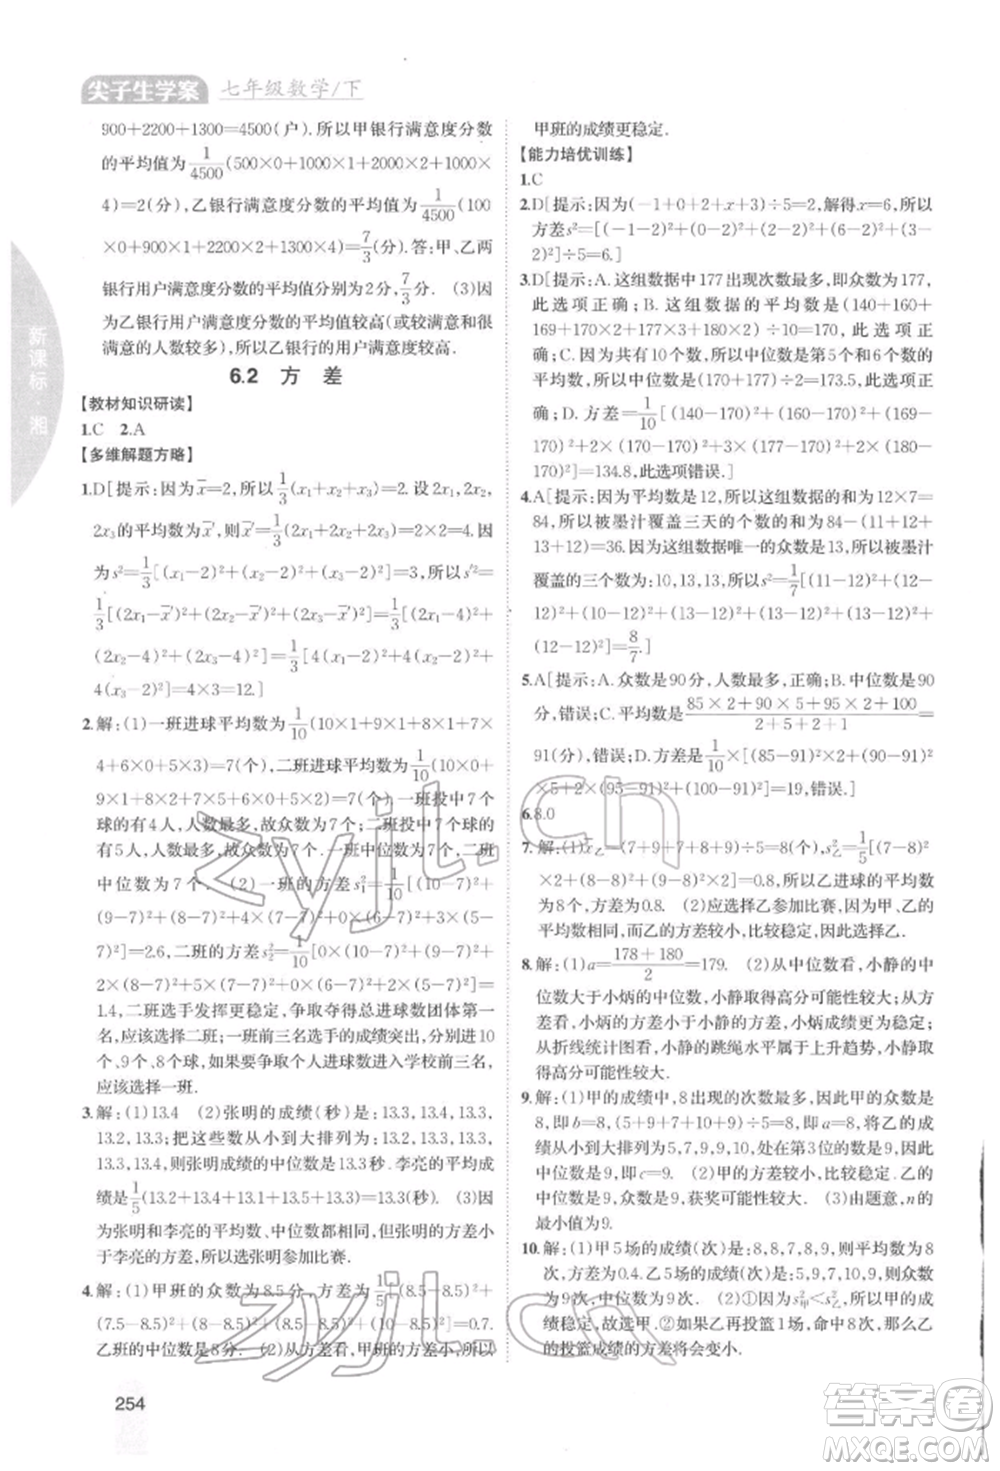 尖子生学案 七年级数学/下
900+2200+1300=4500(户).所以甲银行满意度分数
的平均值为1/4500(500×0+1000×1+2000×2+1000×
4)=2(分),乙银行满意度分数的平均值为1/4500(100
×0+900×1+2200×2+1300×4)=7/3(分).答:甲、乙两
银行用户满意度分数的平均值为2分,7/3分. (3)因
为乙银行用户满意度分数的平均值较高(或较高和较
满意的人数较多),所以乙银行的用户满意度较高.
6.2 方 差
【教材知识研读】
1.C 2.A
【多维解题方略】
1.D[提示:因为x̄=2,所以1/3(x₁+x₂+x₃)=2.设2x₁,2x₂,
2x₃的平均数为x̄′,则x̄′=1/3(2x₁+2x₂+2x₃)=2×2=4.
因为s²=1/3[(x₁-2)²+(x₂-2)²+(x₃-2)²]=3,所以s′²=
1/3[(2x₁-x̄′)²+(2x₂-x̄′)²+(2x₃-x̄′)²]=1/3[(2x₁-4)²+
(2x₂-4)²+(2x₃-4)²]=1/3[4(x₁-2)²+4(x₂-2)²+
4(x₃-2)²]=4×3=12.]
2.解:(1)一班进球平均数为1/10(10×1+9×1+8×1+7×
4+6×0+5×3)=7(个),二班进球平均数为1/10(10×0
+9×1+8×2+7×5+6×0+5×2)=7(个).一班投中7个球
的有4人,人数最多,故众数为7个;二班投中7个球
的有5人,人数最多,故众数为7个.一班中位数为7个,二班
中位数为7个. (2)一班的方差s₁²=1/10[(10-7)²+
(9-7)²+(8-7)²+4×(7-7)²+0×(6-7)²+3×(5-
7)²]=2.6,二班的方差s₂²=1/10[0×(10-7)²+(9-7)²+
2×(8-7)²+5×(7-7)²+0×(6-7)²+2×(5-7)²]=
1.4,二班选手发挥更稳定,争取夺得总进球数团体第一
名,应该选择二班;一班前三名选手的成绩突出,分别是10
个,9个,8个球,如果要争取个人进球数进入学校前三名,
应该选择一班.
3.解:(1)13.4 (2)张明的成绩(秒)为:13.3,13.4,13.3,
13.2,13.3;把这些数从小到大排列为:13.2,13.3,13.3,
13.3,13.4,则张明成绩的中位数是13.3秒.李亮的平均
成绩是1/5(13.2+13.4+13.1+13.5+13.3)=13.3(秒). (3)因
为张明和李亮的平均数、中位数都相同,但张明的方差小
于李亮的方差,所以选张明参加比赛.
4.解:(1)甲班的众数为8.5分,方差为1/5[(8.5-8.5)²+
(7.5-8.5)²+(8-8.5)²+(8.5-8.5)²+(10-8.5)²]=0.7.
乙班的中位数是8分. (2)从方差看,甲班的方差小,所以
甲班的成绩更稳定.
【能力培优训练】
1.C
2.D[提示:因为(-1+0+2+x+3)÷5=2,解得x=6,所以
方差s²=[(-1-2)²+(0-2)²+(2-2)²+(6-2)²+(3-
2)²]÷5=6.]
3.D[提示:A.这组数据中177出现次数最多,即众数为177,
此选项正确;B.这组数据的平均数是(140+160+
169+170×2+177×3+180×2)÷10=170,此选项正
确;C.因为共有10个数据,所以中位数是第5个和6个数据的
平均数,所以中位数是(170+177)÷2=173.5,此选项正
确;D.方差=1/10[(140-170)²+(160-170)²+(169-
170)²+2×(170-170)²+3×(177-170)²+2×(180-
170)²]=134.8,此选项错误.]
4.A[提示:因为平均数是12,所以这组数据的和为12×7=
84,所以被墨汁覆盖三天的个数的和为84-(11+12+
13+12)=36.因为这组数据唯一的众数是13,所以被墨汁
覆盖的三个数为:10,13,13,所以s²=1/7[(11-12)²+(12-
12)²+(10-12)²+(13-12)²+(13-12)²+(13-12)²+
(12-12)²]=8/7.]
5.A[提示:A.众数是90分,人数最多,正确;B.中位数是90
分,错误;C.平均数是(85×2+90×5+95×2+100)/(2+5+2+1)=
91(分),错误;D.方差是1/10×[(85-91)²×2+(90-91)²
×5+(95-91)²×2+(100-91)²]=19,错误.]
6.8.0
7.解:(1)x̄乙=(7+9+7+8+9)÷5=8(个),s乙²=1/5[(7-8)²
×2+(8-8)²+(9-8)²×2]=0.8,所以乙进球的平均数
为8个,方差为0.8. (2)选择乙参加比赛,因为甲、乙的
平均数相同,而乙的方差较小,比较稳定,因此选择乙.
8.解:(1)a=(178+180)/2=179. (2)从中位数看,小静的中
位数大于小炳的中位数,小静取得高分可能性较大;从方
差看,小炳的方差小于小静的方差,小炳成绩更为稳定;
从折线统计图看,小静的跳绳水平属于上升趋势,小静取
得高分可能性较大.
9.解:(1)甲的成绩中,8出现的次数最多,因此甲的众数是
8,即b=8,(5+9+7+10+9)÷5=8,即a=8.将乙的
成绩从小到大排列为5,7,9,9,10,处在第3位的数是9,因
此中位数是9,即c=9. (2)甲的方差较小,比较稳定,乙的
中位数是9,众数是9,获奖可能性较大. (3)由题意,n的
最小值为9.
10.解:(1)甲5场的成绩(次)是:8,8,7,8,9,则平均数为8
次,方差为0.4.乙5场的成绩(次)是:5,9,7,10,9,则众数
为9次,中位数为9次. (2)①因为s甲²<s乙²,所以教
练选择甲.②如果乙再投篮1场,命中8次,那么乙
的投篮成绩的方差将会变小.
254
新课标·湘
zyjl.cn
zyjl.cn
答案圈
MXQE.COM